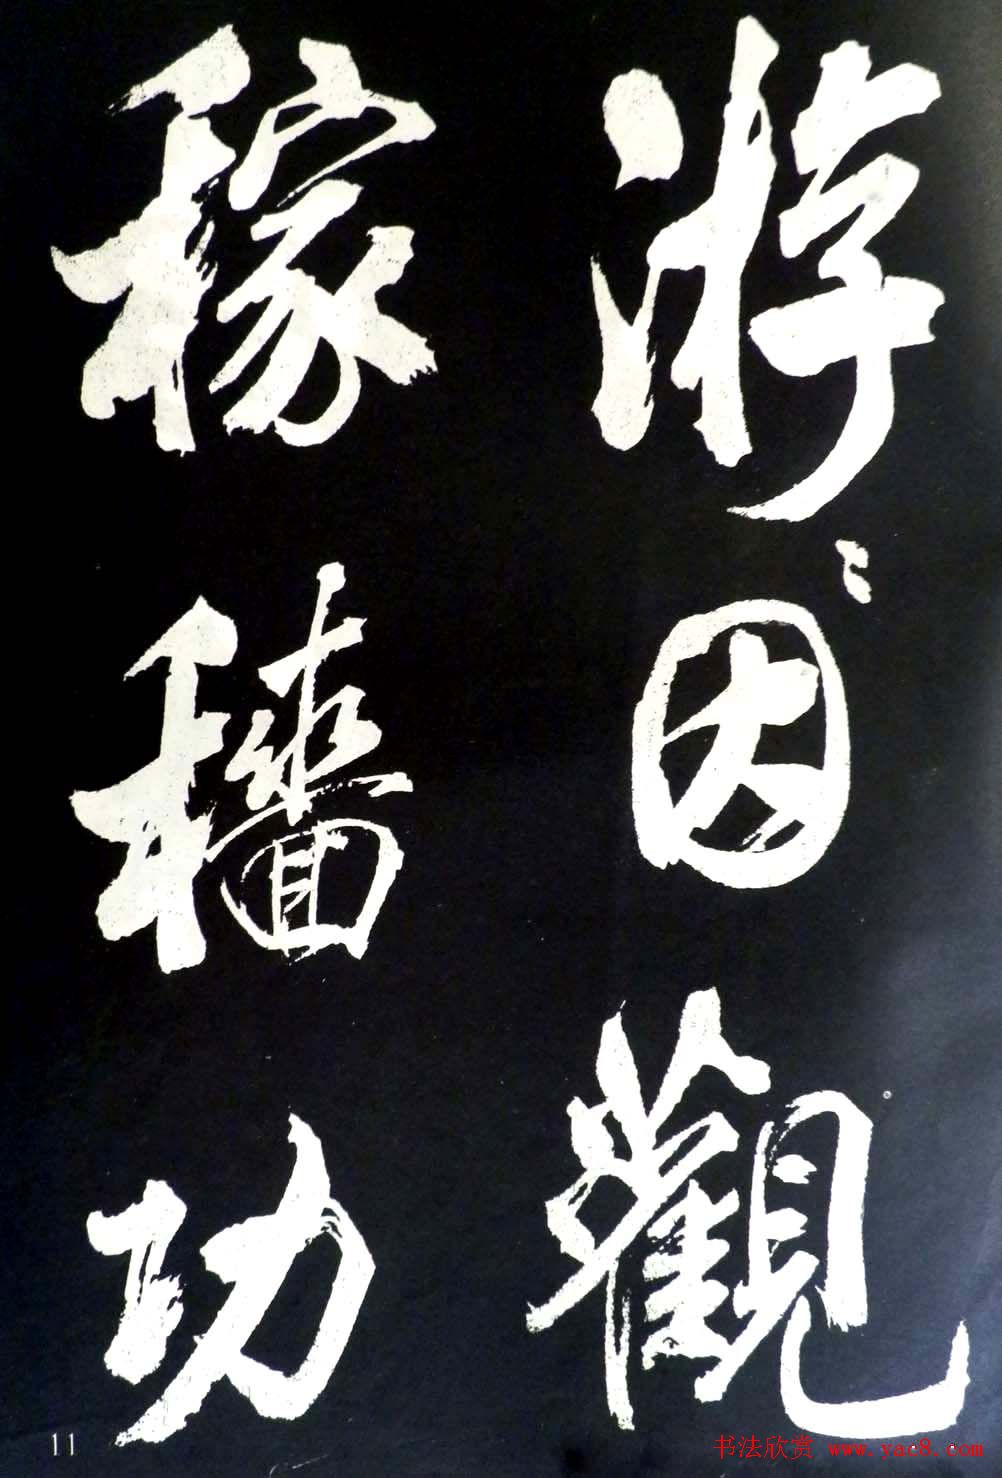 游〻因觀
稼穡功
11
书法欣赏 www.yac8.com